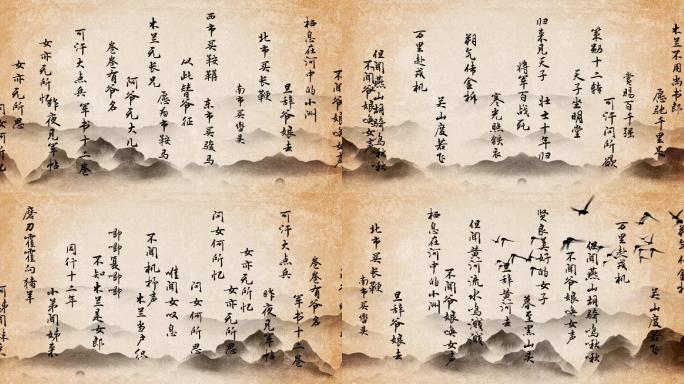 不闻爷娘唤女声
栖息在河中的小洲
旦辞爷娘去
北市买长鞭
南市买辔头
西市买鞍鞯
东市买骏马
从此替爷征
愿为市鞍马
木兰无长兄
阿爷无大儿
卷卷有爷名
军书十二卷
可汗大点兵
昨夜见军帖
女亦无所忆
女亦无所思
问女何所忆
木兰不用尚书郎
愿驰千里足
赏赐百千强
可汗问所欲
策勋十二转
天子坐明堂
归来见天子
壮士十年归
将军百战死
寒光照铁衣
朔气传金柝
关山度若飞
万里赴戎机
但闻燕山胡骑鸣啾啾
不闻爷娘唤女声
卷卷有爷名
军书十二卷
可汗大点兵
昨夜见军帖
女亦无所忆
女亦无所思
问女何所忆
问女何所思
唯闻女叹息
不闻机杼声
木兰当户织
唧唧复唧唧
不知木兰是女郎
同行十二年
小弟闻姊来
磨刀霍霍向猪羊
关山度若飞
万里赴戎机
但闻燕山胡骑鸣啾啾
不闻爷娘唤女声
贤良美好的女子
暮至黑山头
旦辞黄河去
但闻黄河流水鸣溅溅
不闻爷娘唤女声
栖息在河中的小洲
旦辞爷娘去
北市买长鞭
南市买辔头